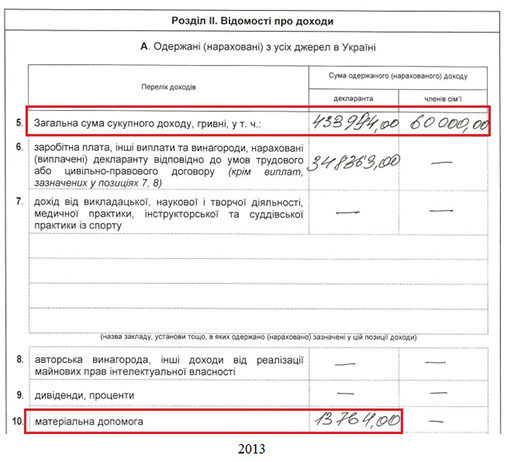 Розділ II. Відомості про доходи
А. Одержані (нараховані) з усіх джерел в Україні
Перелік доходів
Сума одержаного (нарахованого) доходу
декларанта
членів сім'ї
5. Загальна сума сукупного доходу, гривні, у т. ч.: 433994,00 60000,00
6. заробітна плата, інші виплати та винагороди, нараховані
(виплачені) декларанту відповідно до умов трудового
або цивільно-правового договору (крім виплат,
зазначених у позиціях 7, 8)
348363,00 —
7. дохід від викладацької, наукової і творчої діяльності,
медичної практики, інструкторської та суддівської
практики із спорту
— —
(назва закладу, установи тощо, в яких одержано (нараховано) зазначені у цій позиції доходи)
8. авторська винагорода, інші доходи від реалізації
майнових прав інтелектуальної власності
— —
9. дивіденди, проценти — —
10. матеріальна допомога 13764,00 —
2013